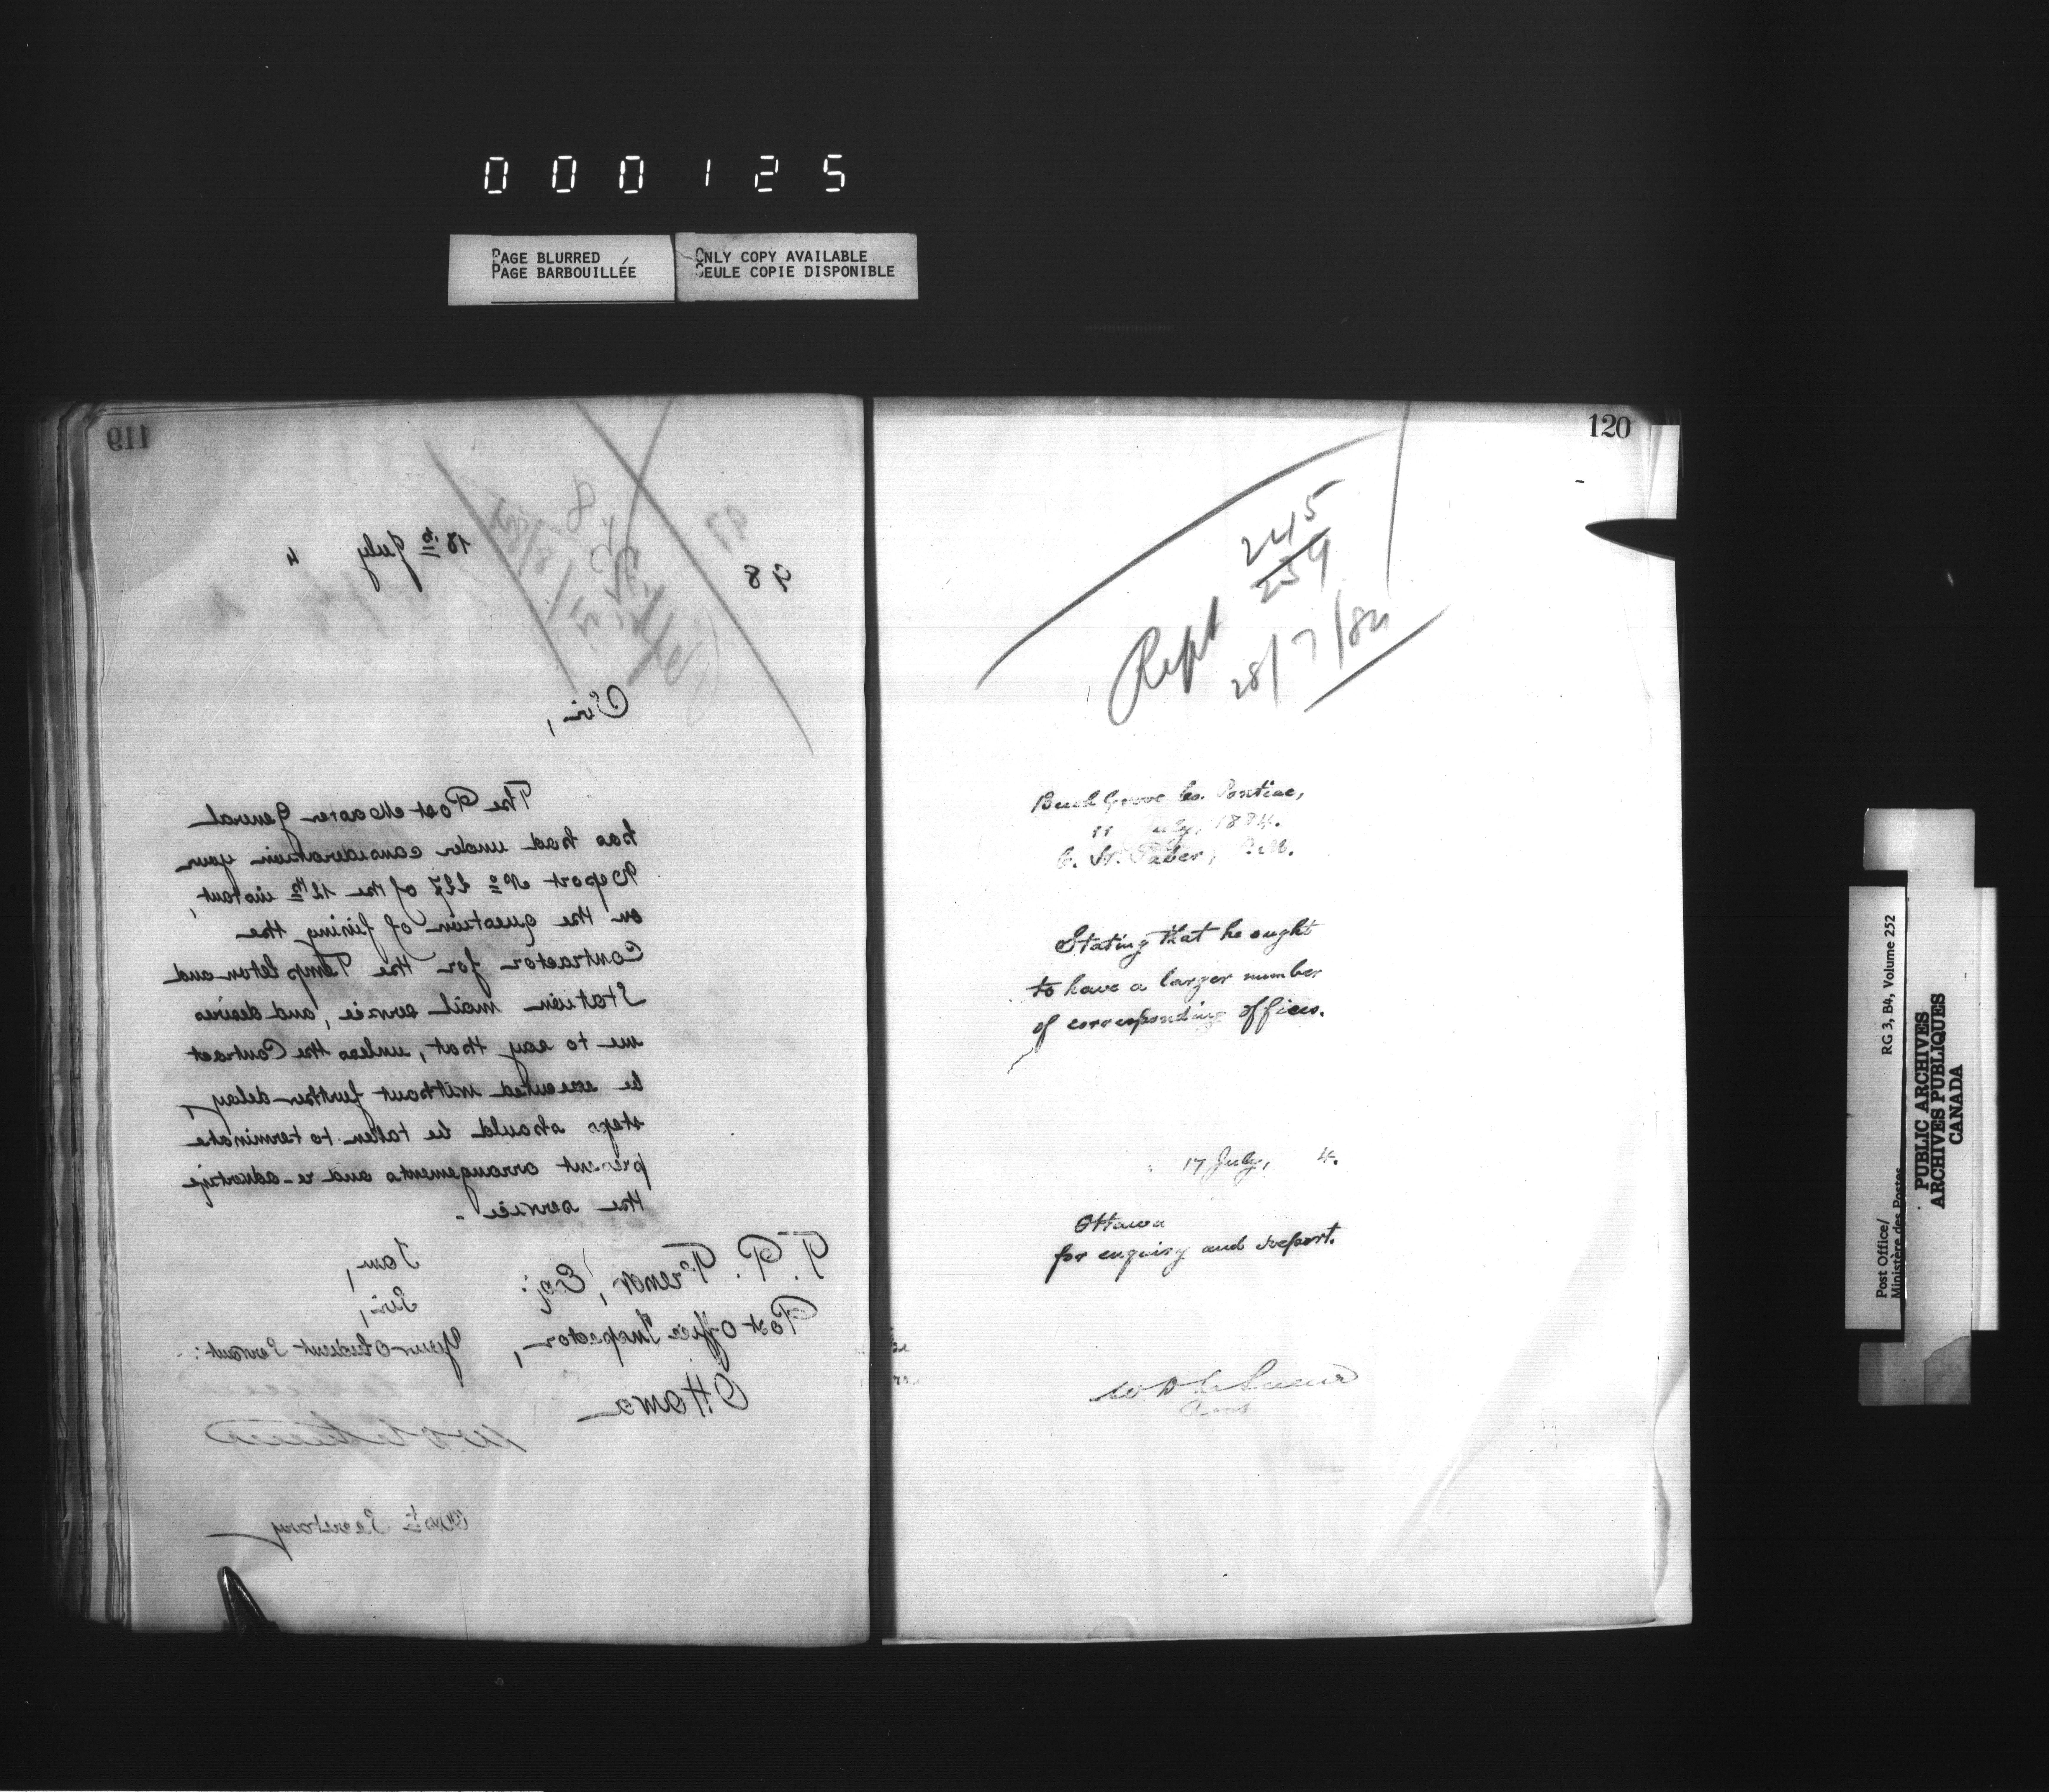 000125
PAGE BLURRED
PAGE BARBOUILLÉE
ONLY COPY AVAILABLE
SEULE COPIE DISPONIBLE
119
98
18th July 4
Sir,
The Post Master General
has had under consideration your
Report No 227 of the 12th instant,
on the question of fining the
Contractor for the Templeton and
Station mail service, and desires
me to say that, unless the Contract
be executed without further delay,
steps should be taken to terminate
present arrangements and re-advertize
the service.
I am,
Sir,
Your obedient Servant:
T. P. French, Esq:
Post Office Inspector,
Ottawa
Secretary
120
245
259
Rept 28/7/84
Beech Grove Co. Pontiac,
11 July, 1884.
Taber, P.M.
Stating that he ought
to have a larger number
of corresponding offices.
17 July, 4.
Ottawa
for enquiry and report.
W D LeSueur
Post Office/
Ministère des Postes
RG 3, B4, Volume 252
PUBLIC ARCHIVES
ARCHIVES PUBLIQUES
CANADA